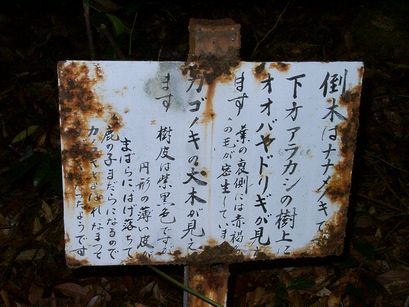 倒木はナナメノキです
下方アラカシの樹上に
オオバヤドリギが見え
ます 葉の裏側には赤褐色
の毛が密生しています
カゴノキの大木が見え
ます 樹皮は紫黒色ですが
円形の薄い皮が
まばらにはげ落ちて
鹿の子まだらになるので